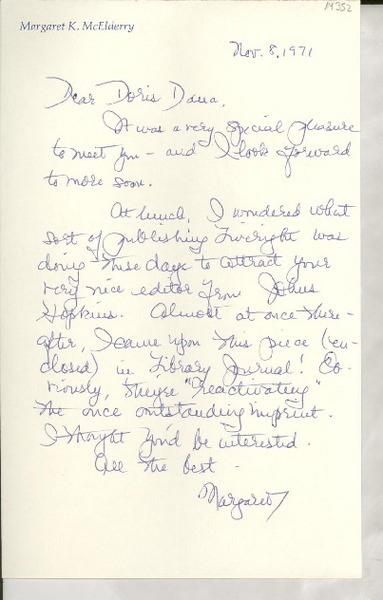 14352
Margaret K. McElderry
Nov. 8, 1971
Dear Doris Dana,
It was a very special pleasure
to meet you – and I look forward
to more soon.
At lunch, I wondered what
sort of publishing Liveright was
doing these days to attract your
very nice editor from Johns
Hopkins. Almost at once there-
after, I came upon this piece (en-
closed) in Library Journal! Ob-
viously, they're "reactivating"
the once outstanding imprint.
I thought you'd be interested.
All the best –
Margaret